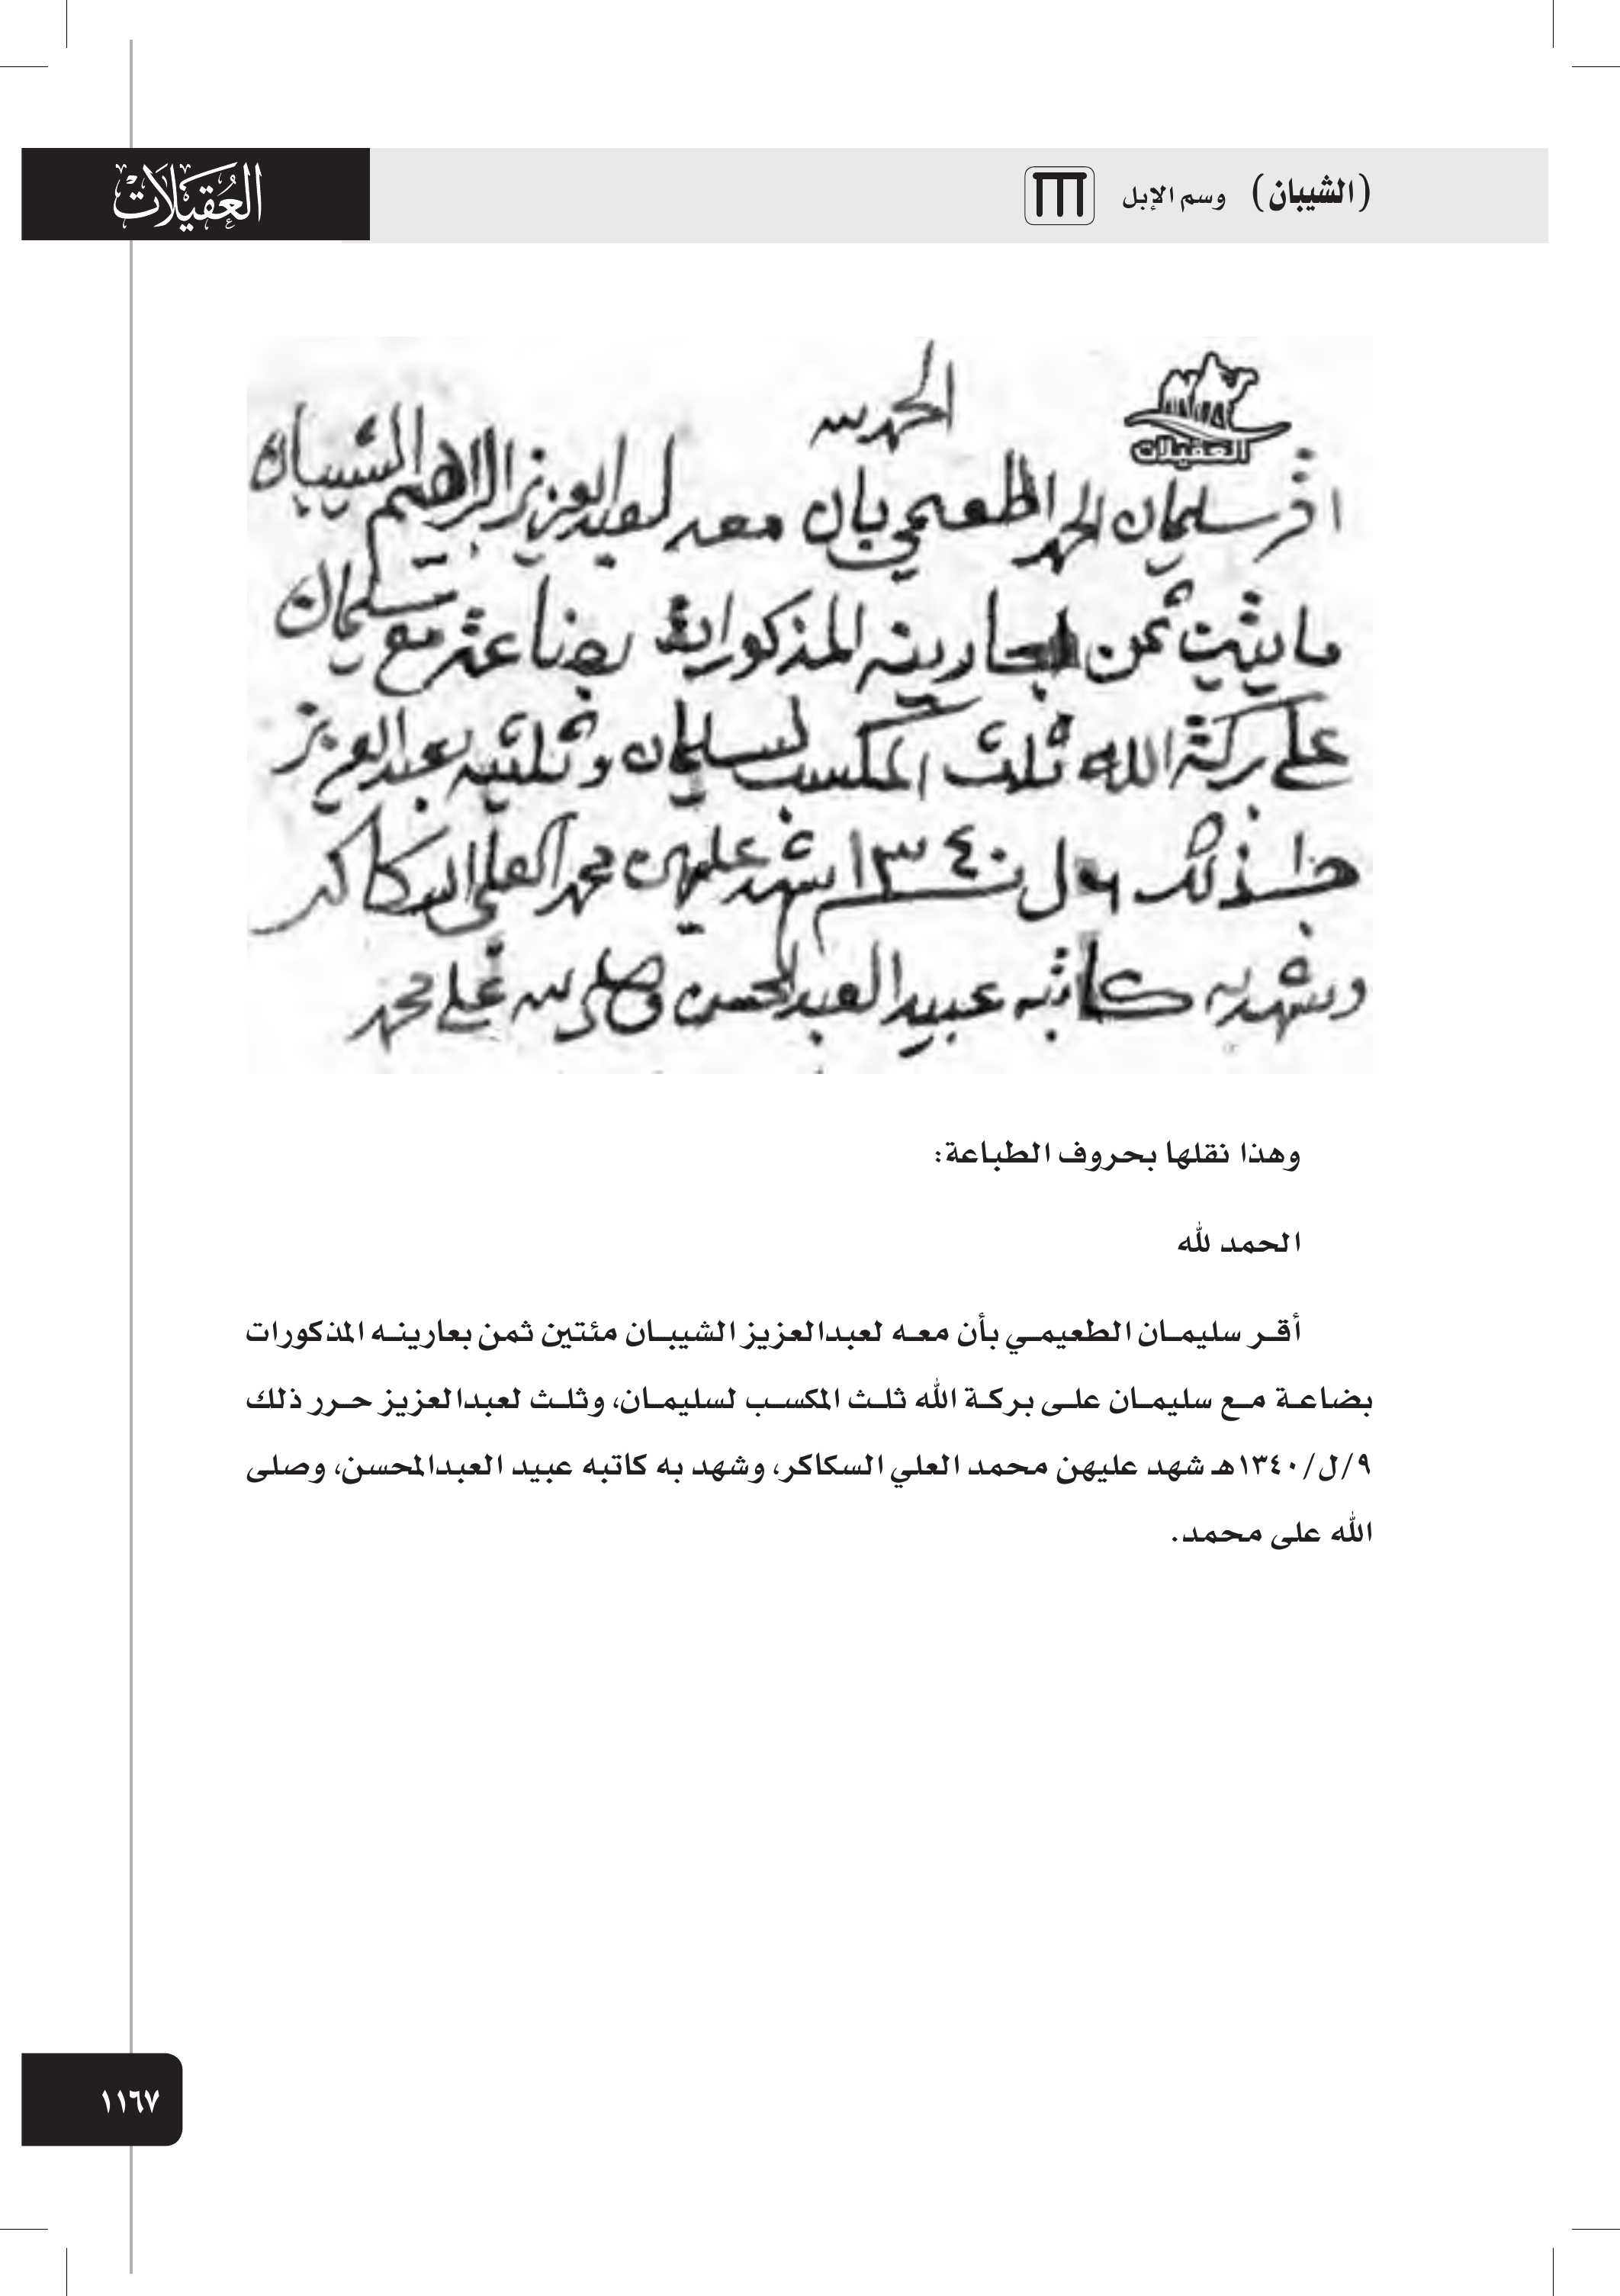 (الشيبان) وسم الإبل
العُقيلات
الحمد لله
العقيلات
اقر سليمان الحمد الطعيمي بان معه لعبد العزيز البراهيم الشيبان
مايتين ثمن بعارينه المذكورات بضاعة مع سليمان
على بركة الله ثلث المكسب لسليمان وثلثيه لعبدالعزيز
ذلك ٩ ل ١٣٤٠ شهد عليهن محمد العلي السكاكر
وشهد به كاتبه عبيد العبدالمحسن وصلى الله على محمد
وهذا نقلها بحروف الطباعة:
الحمد لله
أقر سليمان الطعيمي بأن معه لعبدالعزيز الشيبان مئتين ثمن بعارينه المذكورات
بضاعة مع سليمان على بركة الله ثلث المكسب لسليمان، وثلث لعبدالعزيز حرر ذلك
٩/ل/١٣٤٠هـ شهد عليهن محمد العلي السكاكر، وشهد به كاتبه عبيد العبدالمحسن، وصلى
الله على محمد.
١١٦٧